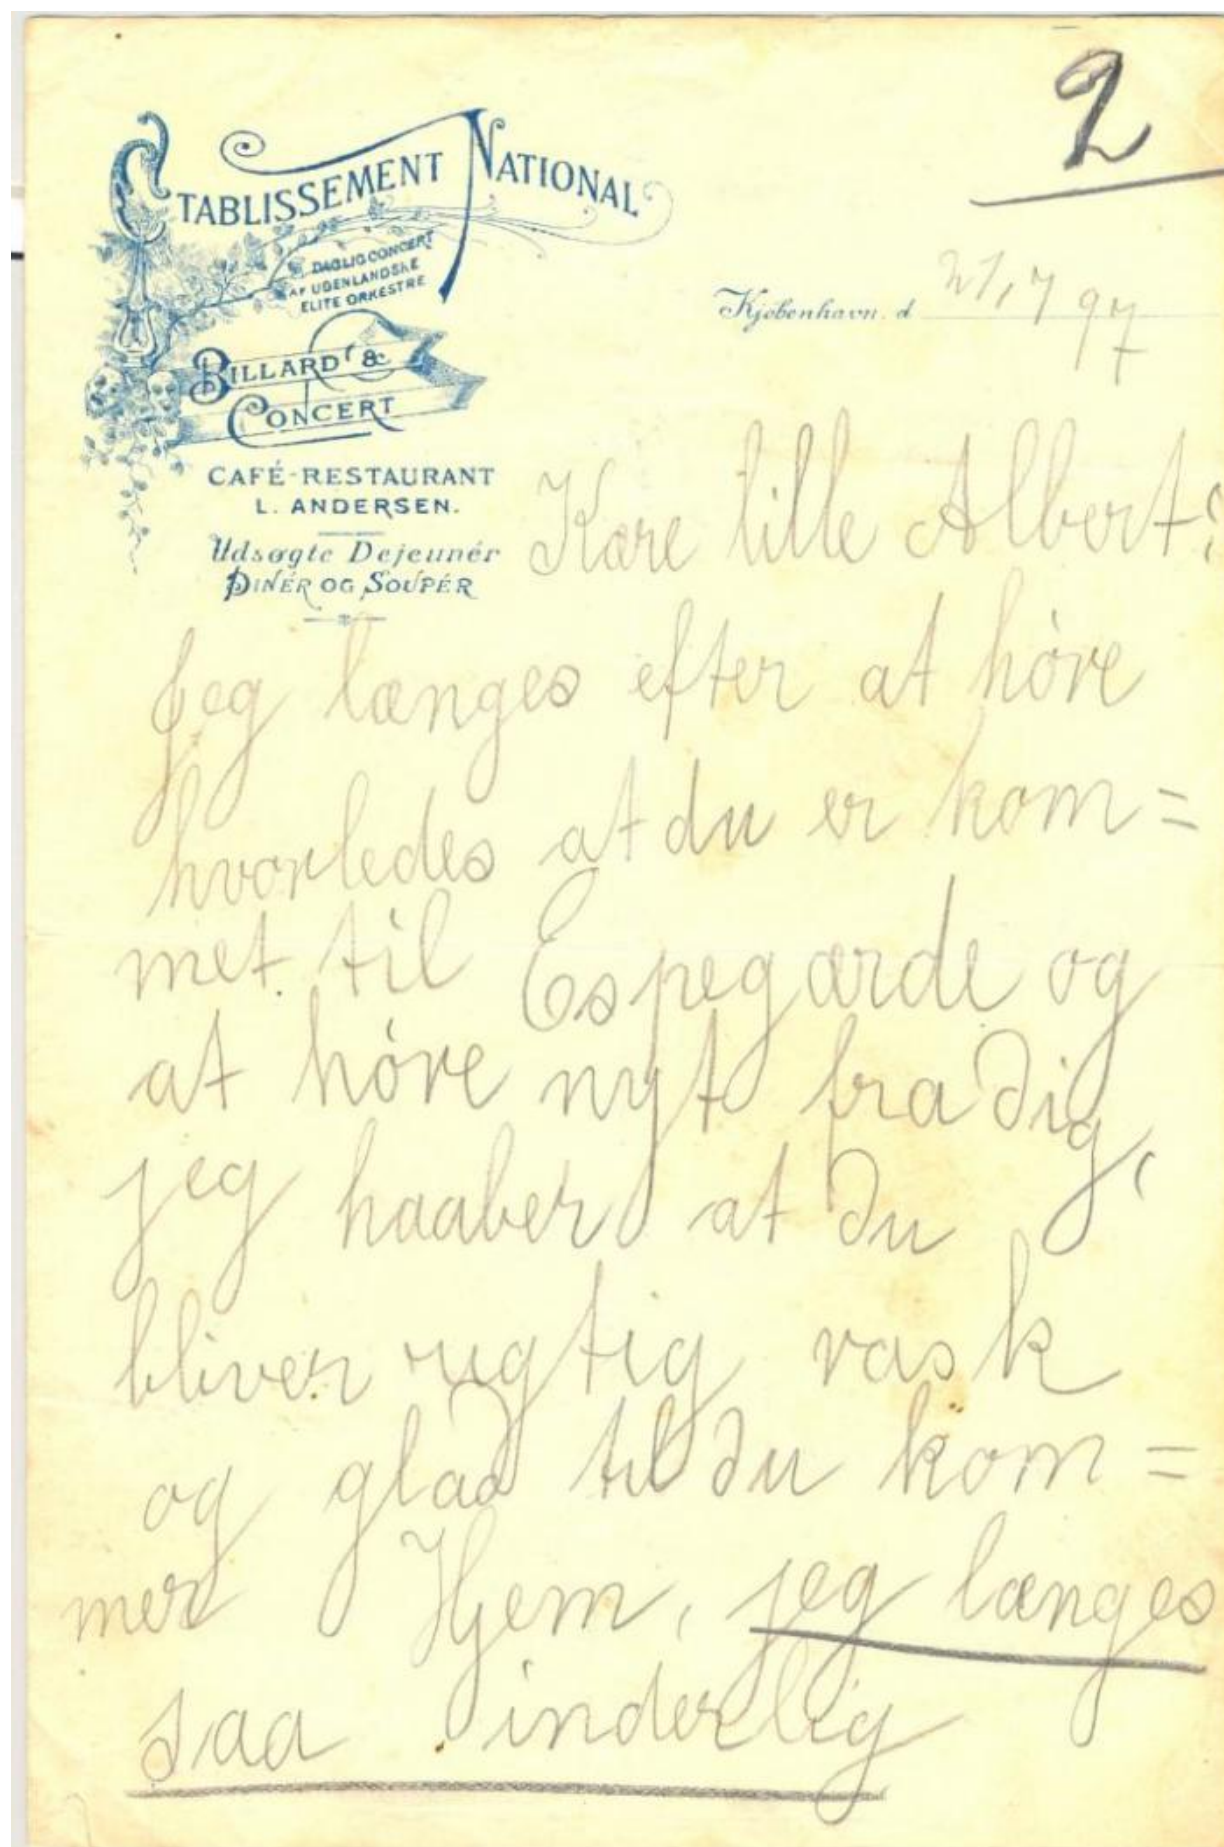 2
ETABLISSEMENT NATIONAL
DAGLIG CONCERT
AF UDENLANDSKE
ELITE ORKESTRE
Kjøbenhavn. d 21,7 97
BILLARD &
CONCERT
CAFÉ-RESTAURANT
L. ANDERSEN.
Udsøgte Dejeunér
DINÉR OG SOUPÉR
Kære lille Albert!
Jeg længes efter at høre
hvorledes at du er kom=
met til Espegærde og
at høre nyt fra dig,
jeg haaber at du
bliver rigtig rask
og glad til du kom=
mer Hjem, jeg længes
saa inderlig